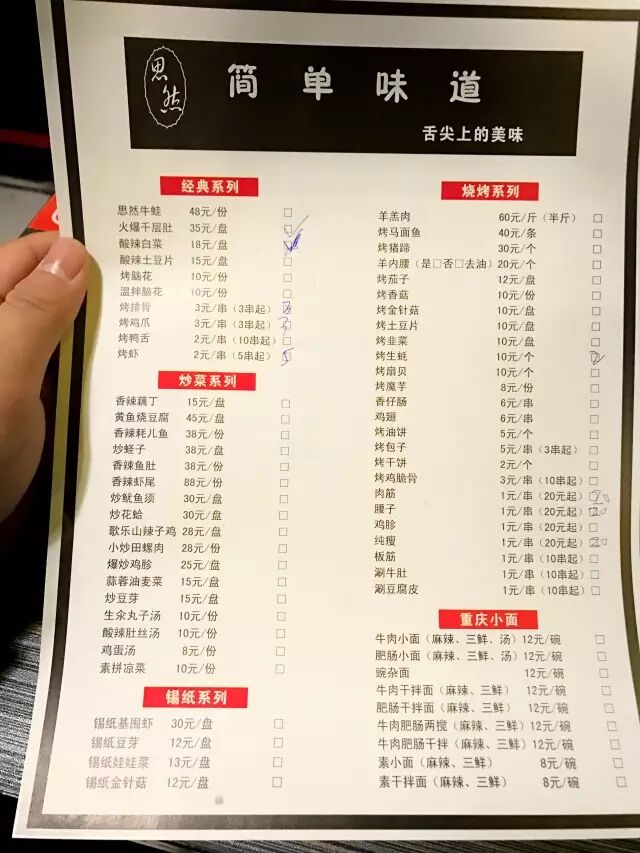 思然
简单味道
舌尖上的美味
经典系列
思然牛蛙 48元/份 □
火爆千层肚 35元/盘 □
酸辣白菜 18元/盘 □
酸辣土豆片 15元/盘 □
烤脑花 10元/份 □
温拌脑花 10元/份 □
烤排骨 3元/串（3串起）
烤鸡爪 3元/串（3串起） 3
烤鸭舌 2元/串（10串起）□
烤虾 2元/串（5串起） 5
炒菜系列
香辣藕丁 15元/盘 □
黄鱼烧豆腐 45元/盘 □
香辣耗儿鱼 38元/份 □
炒蛏子 38元/盘 □
香辣鱼肚 38元/份 □
香辣虾尾 88元/份 □
炒鱿鱼须 30元/盘 □
炒花蛤 30元/盘 □
歌乐山辣子鸡 28元/盘 □
小炒田螺肉 28元/份 □
爆炒鸡胗 25元/盘 □
蒜蓉油麦菜 15元/盘 □
炒豆芽 15元/盘 □
生汆丸子汤 10元/份 □
酸辣肚丝汤 10元/份 □
鸡蛋汤 8元/份 □
素拼凉菜 10元/份 □
锡纸系列
锡纸基围虾 30元/盘 □
锡纸豆芽 12元/盘 □
锡纸娃娃菜 13元/盘 □
锡纸金针菇 12元/盘 □
烧烤系列
羊羔肉 60元/斤（半斤） □
烤马面鱼 40元/条 □
烤猪蹄 30元/个 □
羊内腰（是□否□去油）20元/个 □
烤茄子 12元/盘 □
烤香菇 10元/份 □
烤金针菇 10元/盘 □
烤土豆片 10元/盘 □
烤韭菜 10元/盘 □
烤生蚝 10元/个 2
烤扇贝 10元/个 □
烤魔芋 8元/份 □
香仔肠 6元/串 □
鸡翅 6元/串 □
烤油饼 5元/个 □
烤包子 5元/串（3串起） □
烤干饼 2元/个 □
烤鸡脆骨 3元/串（10串起）□
肉筋 1元/串（20元起） 20
腰子 1元/串（20元起） 20
鸡胗 1元/串（20元起）□
纯瘦 1元/串（20元起） 20
板筋 1元/串（10串起）□
涮牛肚 1元/串（10串起）□
涮豆腐皮 1元/串（10串起）□
重庆小面
牛肉小面（麻辣、三鲜、汤）12元/碗 □
肥肠小面（麻辣、三鲜、汤）12元/碗 □
豌杂面 12元/碗 □
牛肉干拌面（麻辣、三鲜） 12元/碗 □
肥肠干拌面（麻辣、三鲜） 12元/碗 □
牛肉肥肠两搅（麻辣、三鲜）12元/碗 □
牛肉肥肠干拌（麻辣、三鲜）12元/碗 □
素小面（麻辣、三鲜） 8元/碗 □
素干拌面（麻辣、三鲜） 8元/碗 □